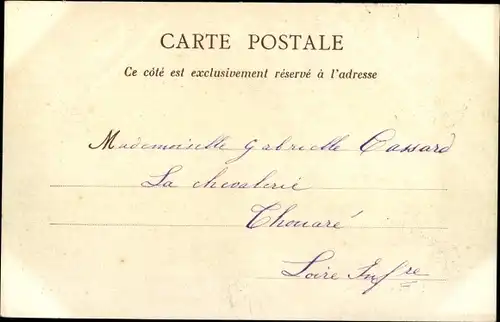 CARTE POSTALE
Ce côté est exclusivement réservé à l'adresse
Mademoiselle Gabrielle Cassard
La chevalerie
Thouaré
Loire Infre